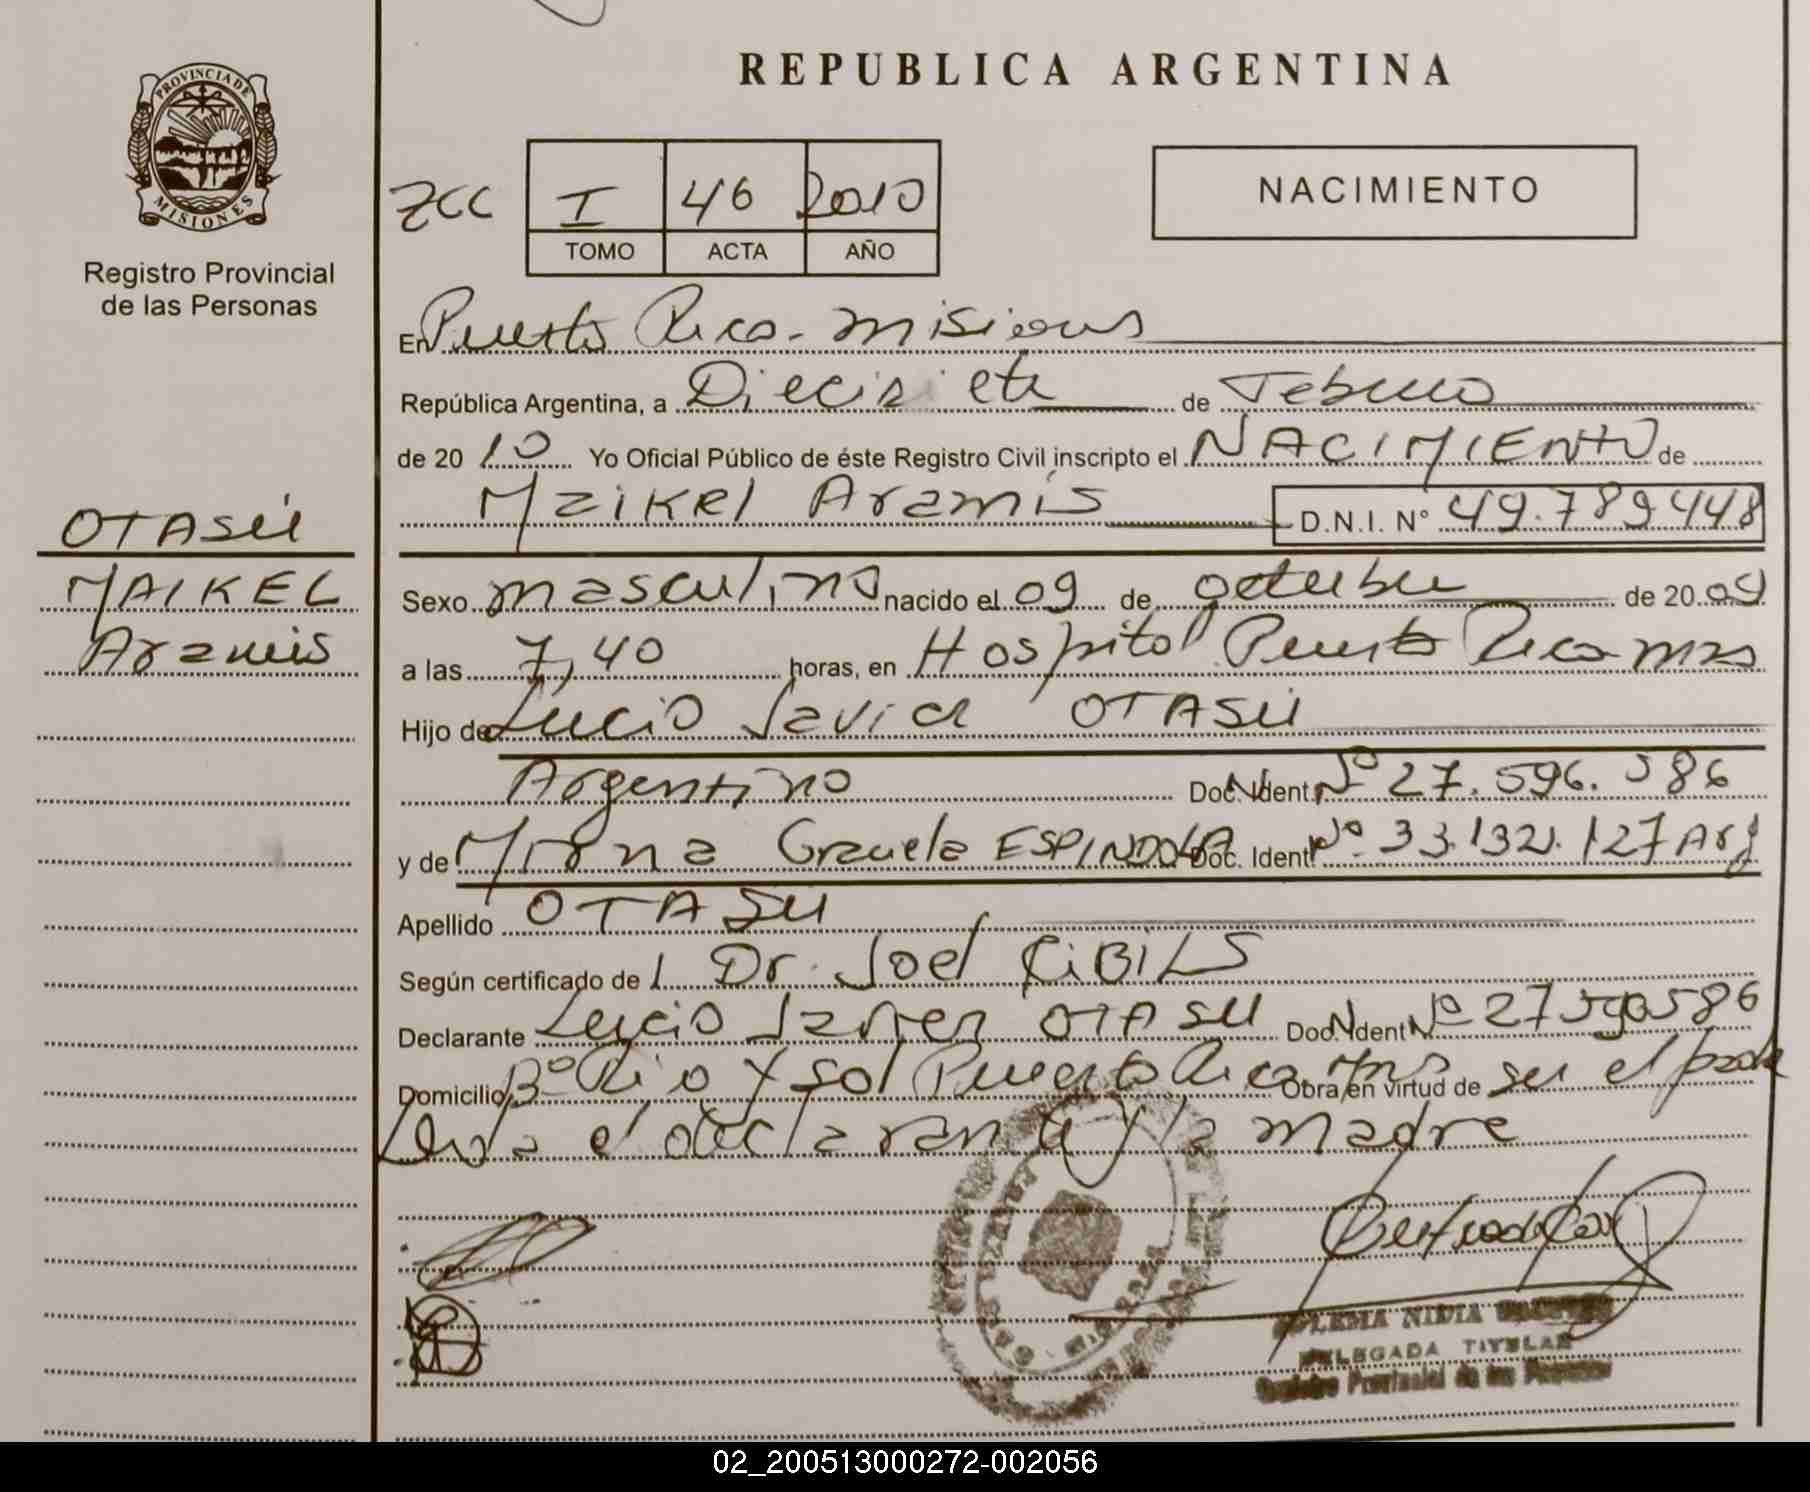 REPUBLICA ARGENTINA
PROVINCIA DE
MISIONES
Registro Provincial
de las Personas
ZCC I 46 2010
TOMO ACTA AÑO
NACIMIENTO
En Puerto Rico - misiones
República Argentina, a Diecisiete de Febrero
de 20 10 Yo Oficial Público de éste Registro Civil inscripto el NACIMIENTO de
Maikel Aramís D.N.I. N° 49.789448
OTASÚ
MAIKEL
Aramis
Sexo masculino nacido el 09 de octubre de 20 09
a las 7,40 horas, en Hospital Puerto Rico mnes
Hijo de Lucio Javier OTASÚ
Argentino Doc. Ident. N° 27.596.586
y de Mirna Graciela ESPINDOLA Doc. Ident. N°. 33.132.127 Arg
Apellido OTASU
Según certificado de 1 Dr. Joel CIBILS
Declarante Lucio Javier OTASU Doc. Ident. N° 27596586
Domicilio B° Rio y Sol Puerto Rico mns Obra en virtud de ser el padre
Leída el declarante y la madre
NIDIA
DELEGADA TITULAR
Registro Provincial de las Personas
02_200513000272-002056